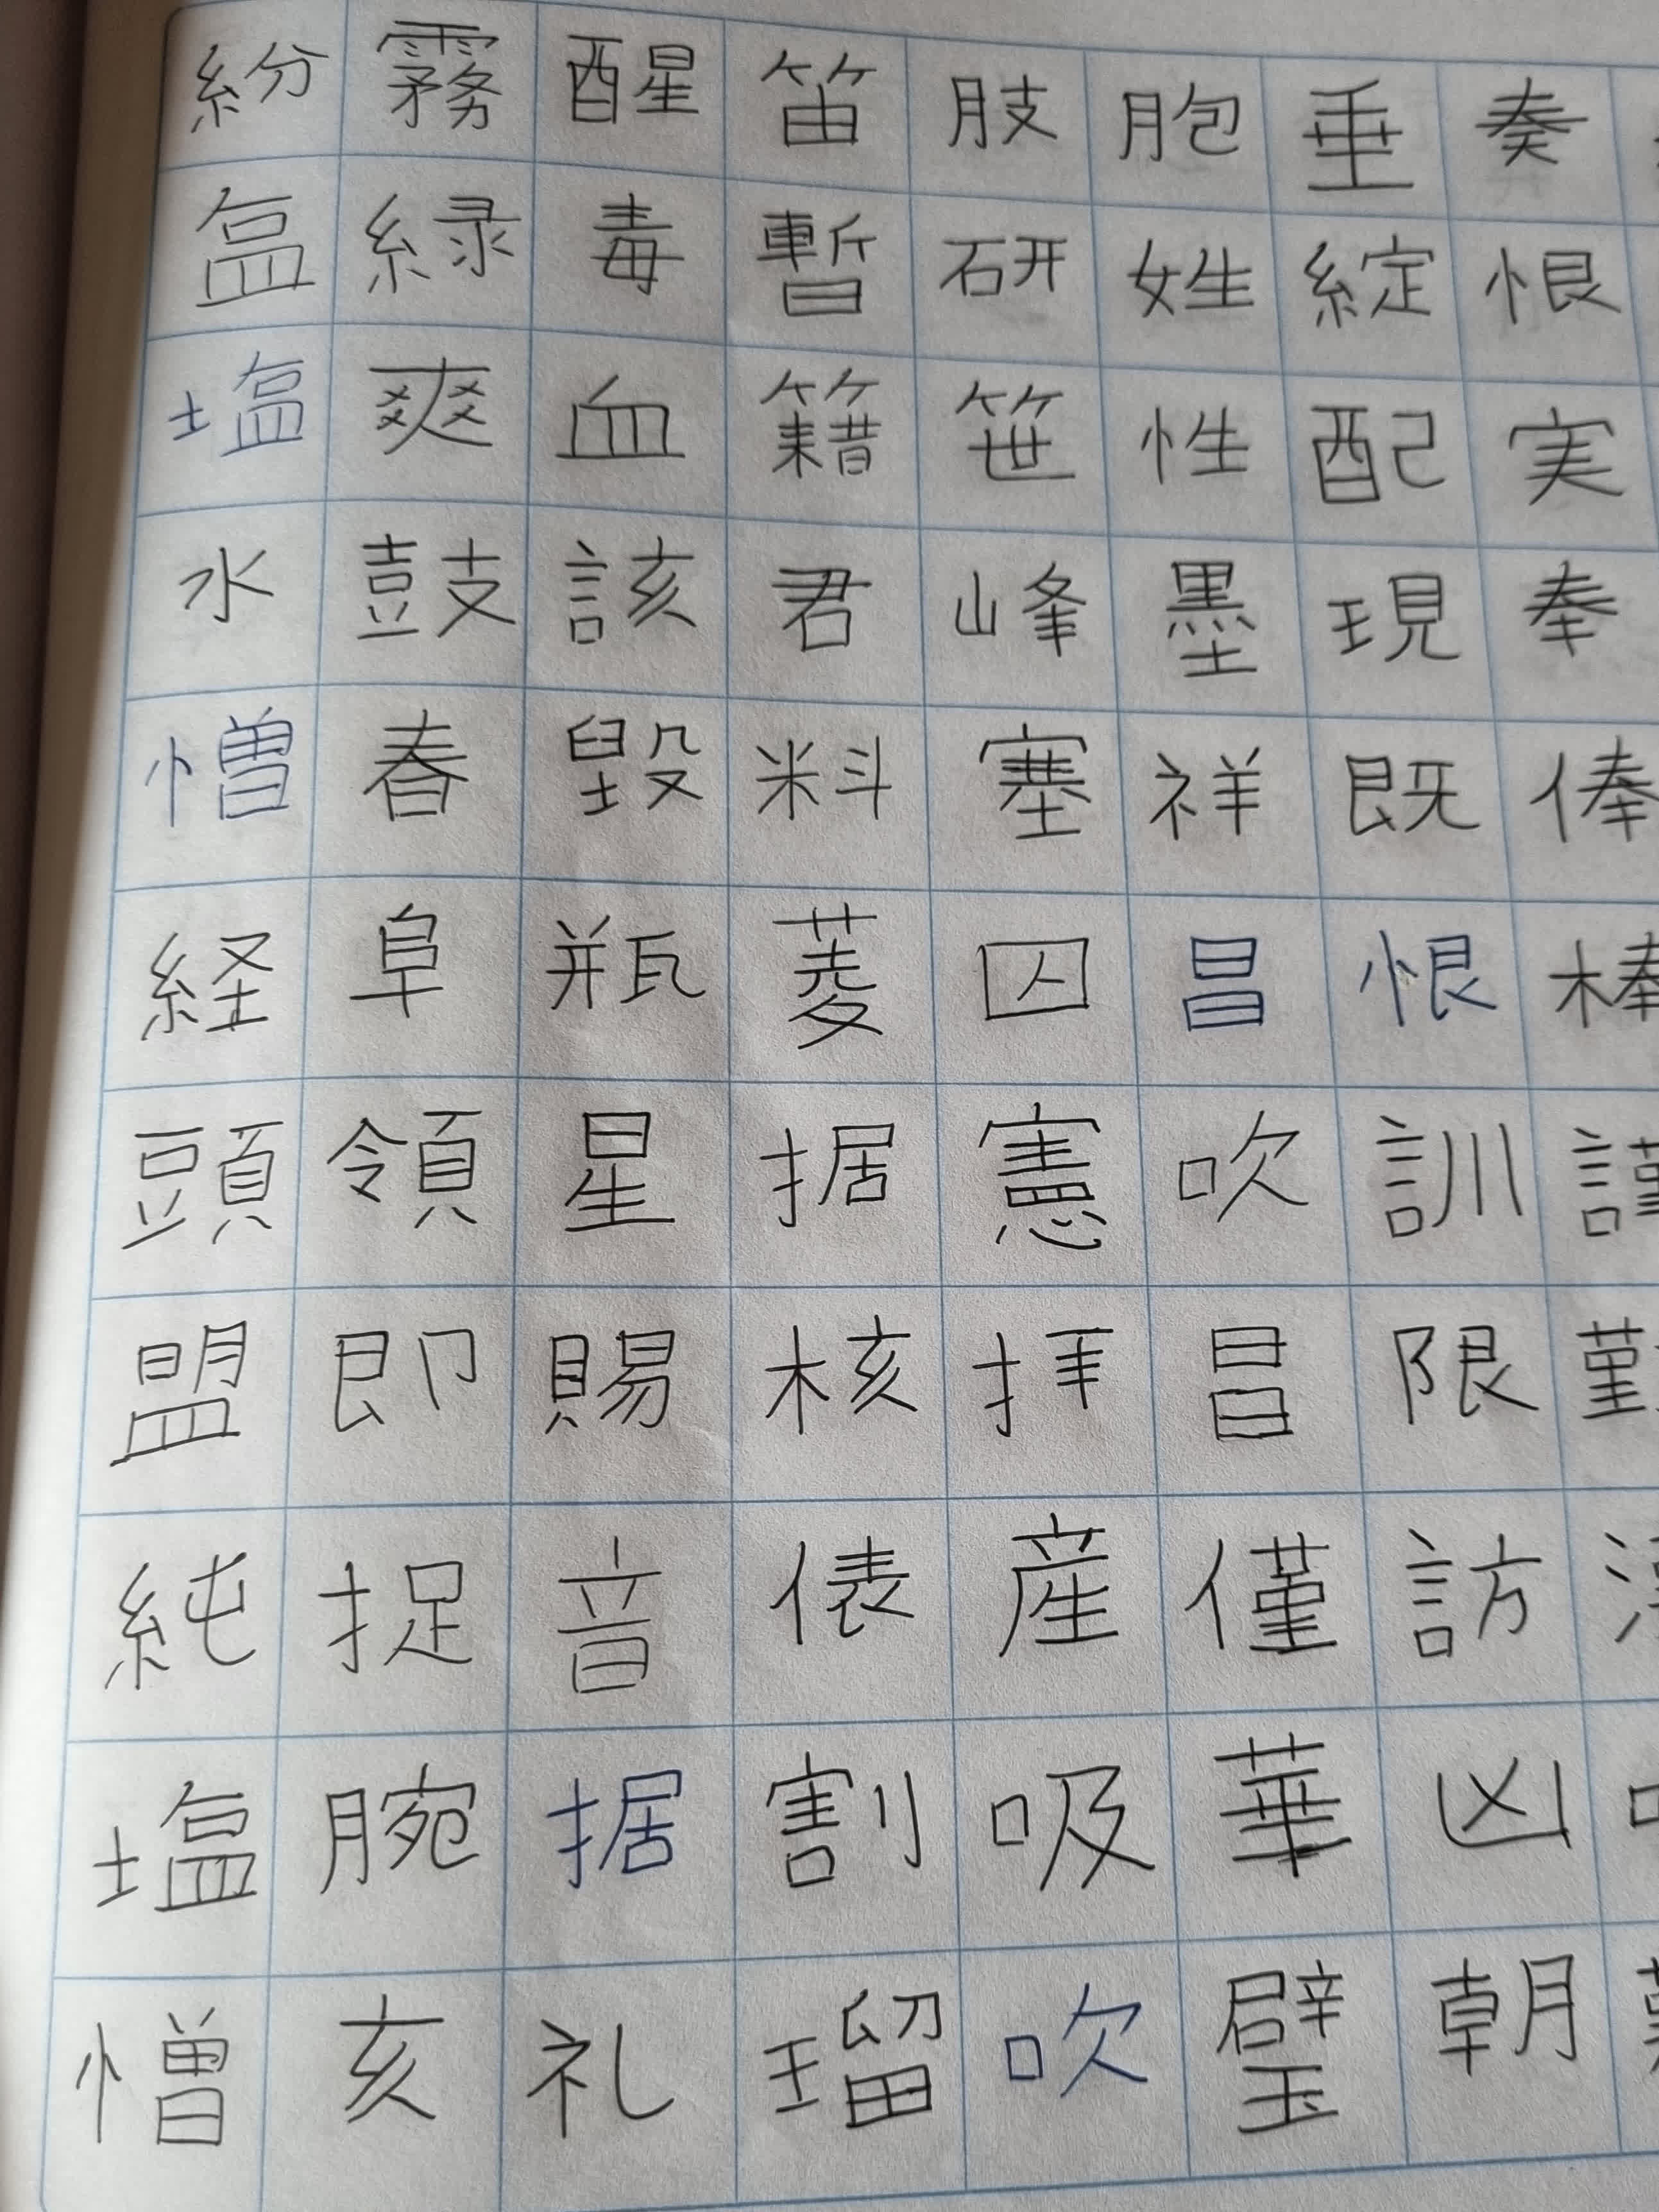 紛霧醒笛肢胞垂奏
緑毒暫研姓綻恨
塩爽血籍笹性配実
水鼓該君峰墨現奉
憎春毀料塞祥既俸
経阜瓶菱囚昌恨棒
頭領星据憲吹訓謹
盟即賜核拝昌限勤
純捉音俵産僅訪
塩腕据割吸華凶
憎亥礼瑠吹璧朝